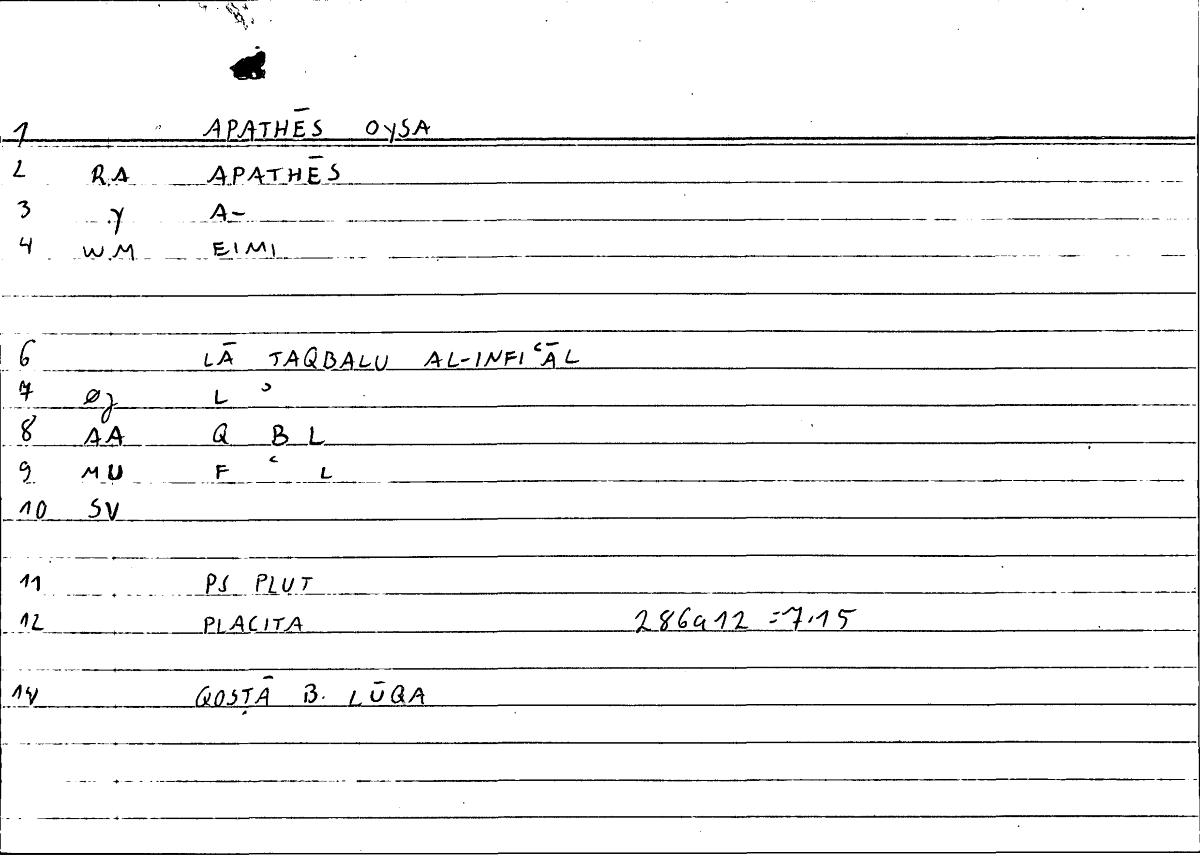 1 APATHĒS OYSA
2 RA APATHĒS
3 Y A-
4 WM EIMI
6 LĀ TAQBALU AL-INFIʿĀL
7 ØJ L ʾ
8 AA Q B L
9 MU F ʿ L
10 SV
11 PS PLUT
12 PLACITA 286a12 =7.15
14 QOSṬĀ B. LŪQA